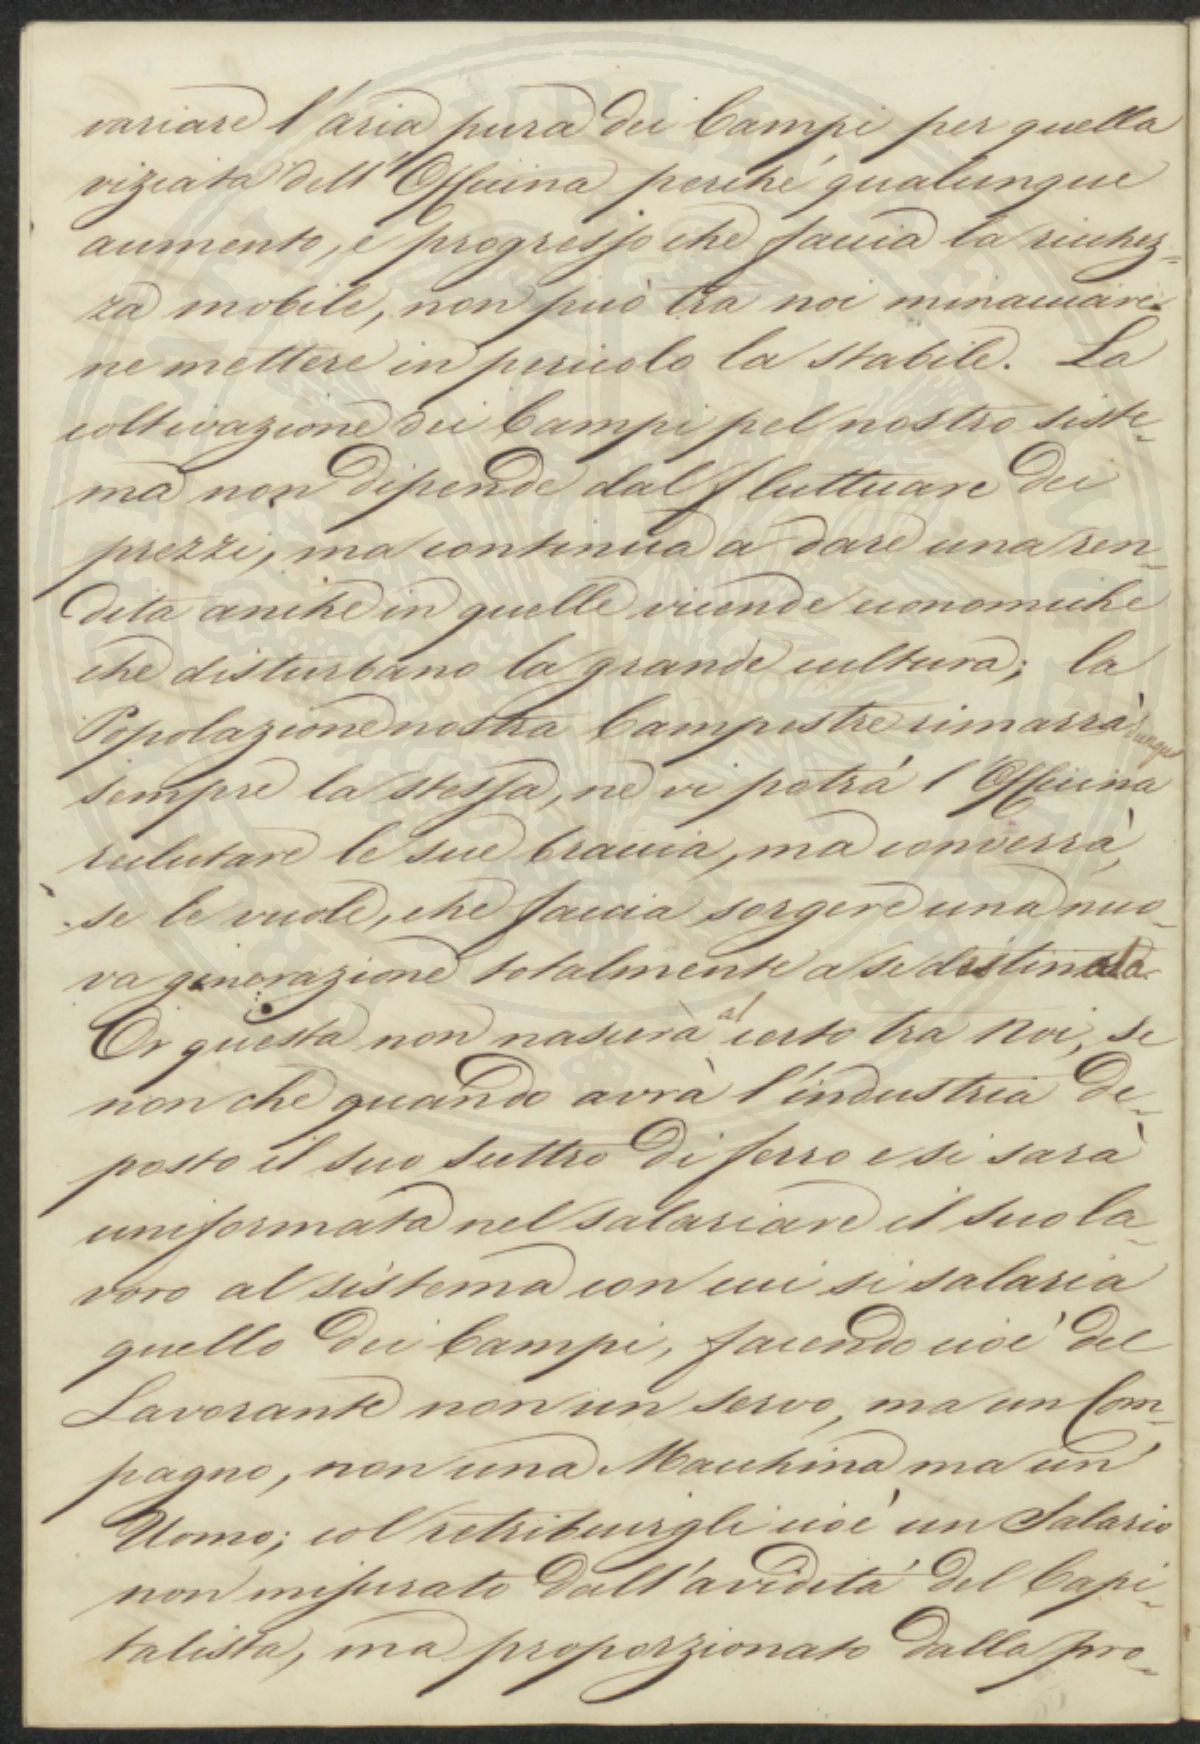 variare l'aria pura dei Campi per quella
viziata dell'Officina perché qualunque
aumento, e progresso che faccia la ricchez=
za mobile, non può tra noi minacciare
ne mettere in pericolo la stabile. La
coltivazione dei Campi pel nostro siste=
ma non dipende dal fluttuare dei
prezzi, ma continua a dare una ren=
dita anche in quelle vicende economiche
che disturbano la grande cultura; la
Popolazione nostra Campestre rimarrà dunque
sempre la stessa, nè vi potrà l'Officina
reclutare le sue braccia, ma converrà,
se le vuole, che faccia sorgere una nuo=
va generazione totalmente a se destinata.
Or questa non nascerà al certo tra noi, se
non che quando avrà l'industria de=
posto il suo scettro di ferro e si sarà
uniformata nel salariare il suo la=
voro al sistema con cui si salaria
quello dei Campi, facendo cioè del
Lavorante non un servo, ma un Com=
pagno, non una Macchina ma un
Uomo; col retribuirgli cioè un Salario
non misurato dall'avidità del Capi=
talista, ma proporzionato dalla pro=